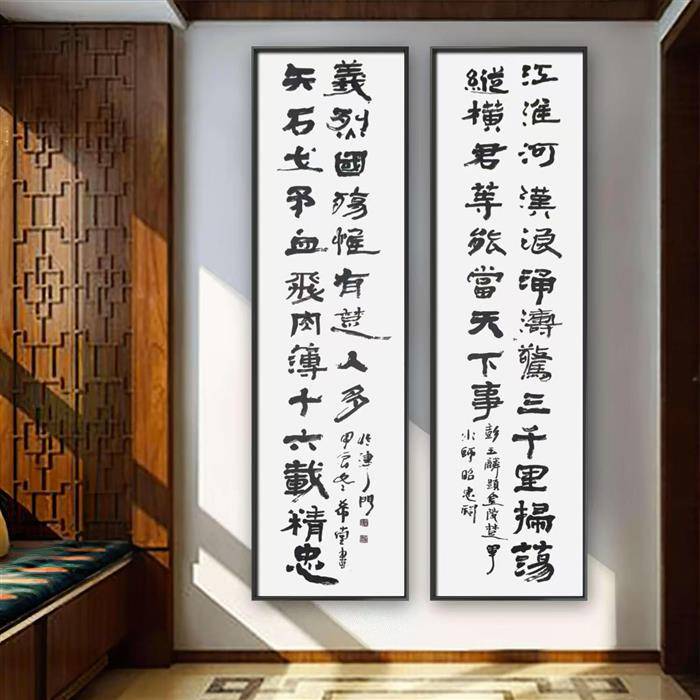 江淮河漢浪涌濤驚三千里掃蕩
縱橫君等能當天下事
彭玉麟題金陵楚軍
水師昭忠祠
矢石戈矛血飛肉薄十六載精忠
義烈國殤惟有楚人多
甲辰冬希堂書
於津門